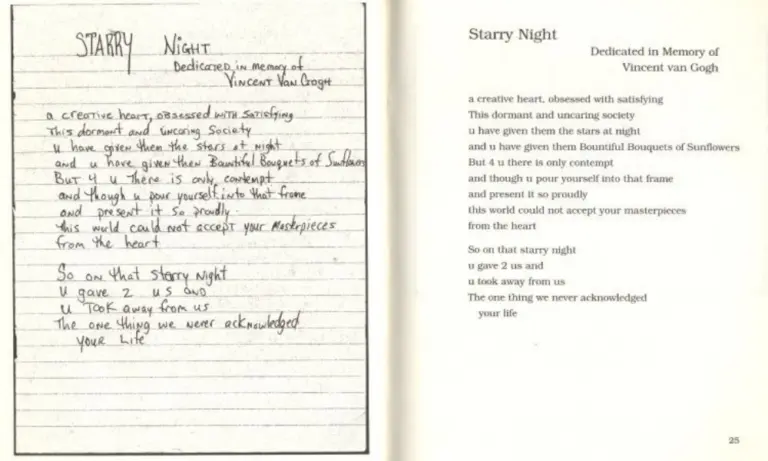 STARRY NIGHT
Dedicated in memory of
Vincent Van Gogh
a creative heart, obsessed with satisfying
This dormant and uncaring society
u have given them the stars at night
and u have given them Bountiful Bouquets of Sunflowers
But 4 u there is only contempt
and though u pour yourself into that frame
and present it so proudly
this world could not accept your Masterpieces
from the heart
So on that starry night
u gave 2 us and
u took away from us
The one thing we never acknowledged
your Life
Starry Night
Dedicated in Memory of
Vincent van Gogh
a creative heart, obsessed with satisfying
This dormant and uncaring society
u have given them the stars at night
and u have given them Bountiful Bouquets of Sunflowers
But 4 u there is only contempt
and though u pour yourself into that frame
and present it so proudly
this world could not accept your masterpieces
from the heart
So on that starry night
u gave 2 us and
u took away from us
The one thing we never acknowledged
your life
25